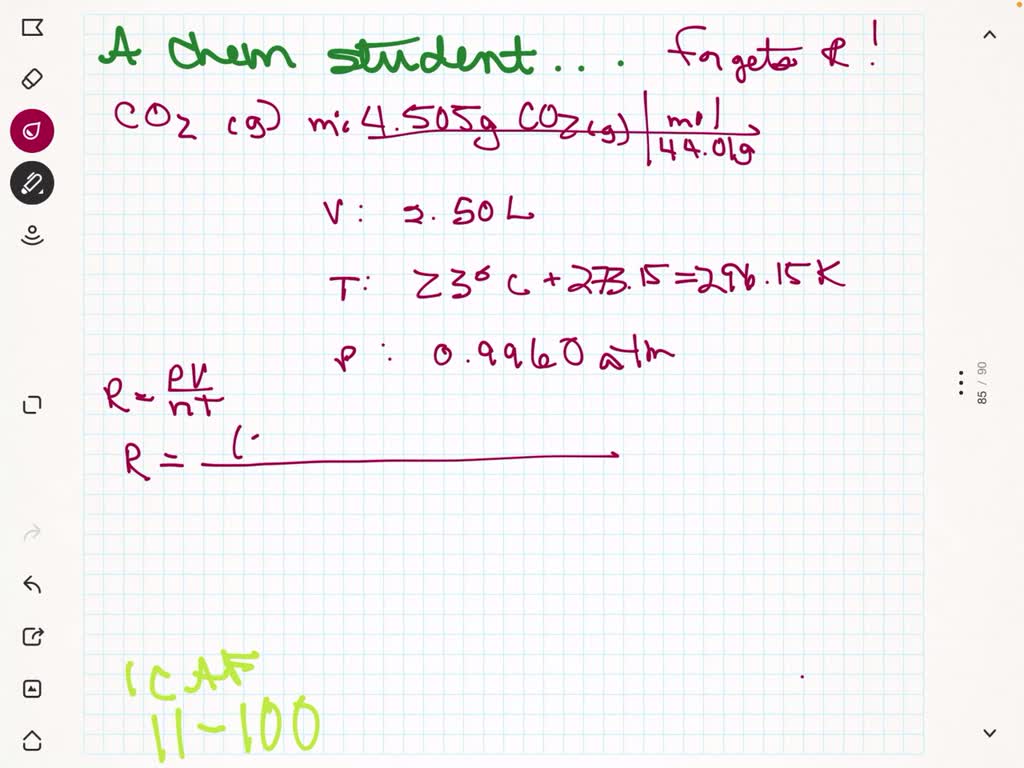 A chem student... Forgets R!
CO2 (g) m: 4.505g CO2(g) | mol
44.01g
V: 2.50 L
T: 23° C + 273.15 = 296.15 K
P: 0.9960 atm
R = PV
nT
R = (
ICAF
11-100
85 / 90